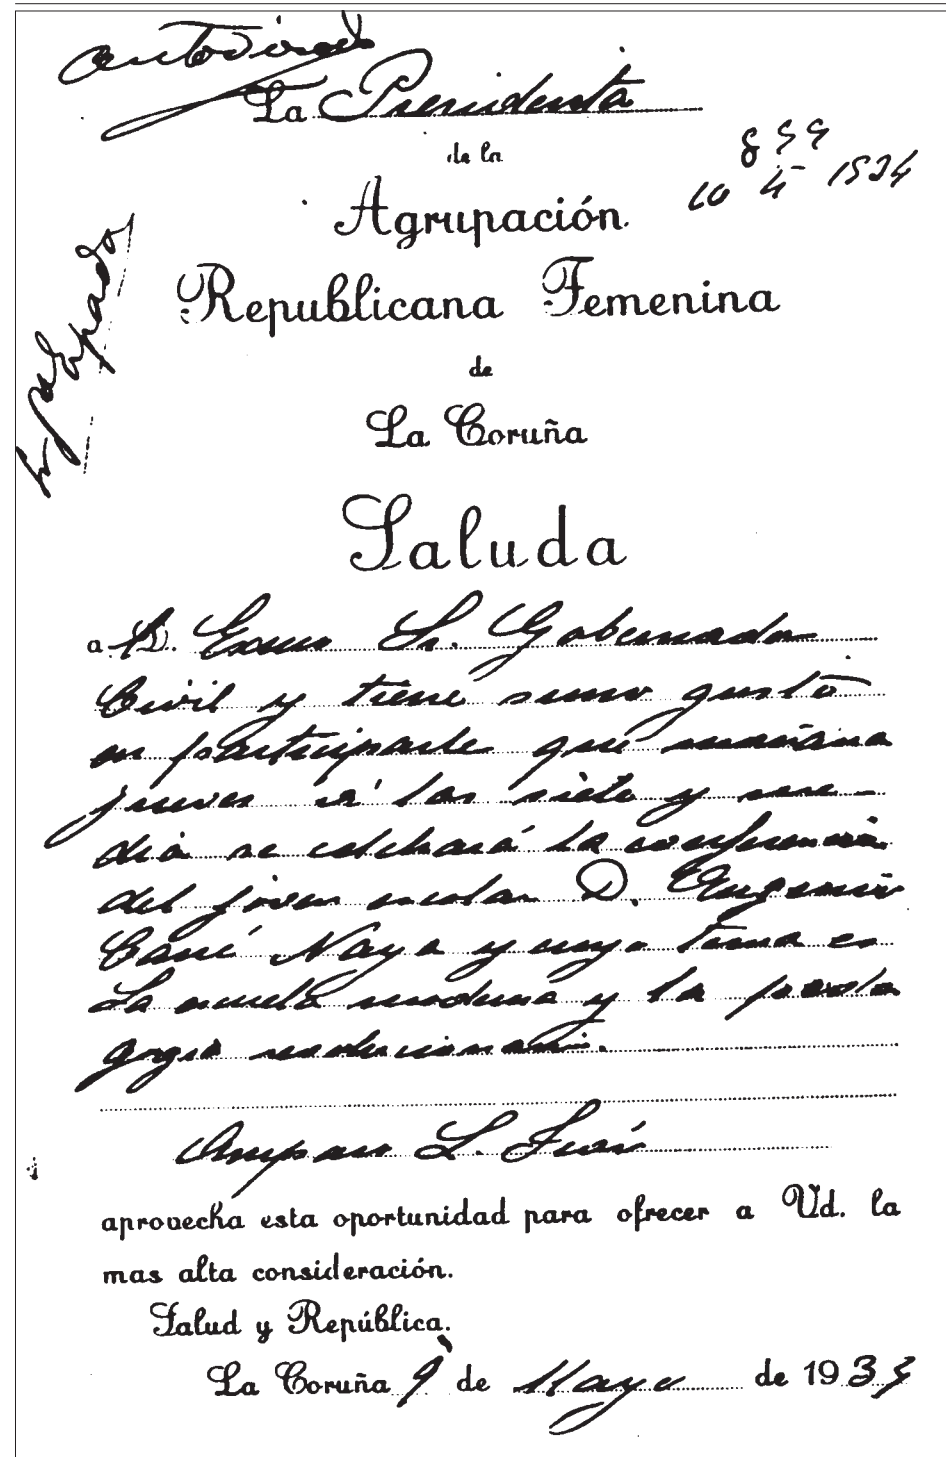 autorizado
La Presidenta
de la
899
10 5 1934
Agrupación
Republicana Femenina
de
La Coruña
Saluda
a D. Exmo Sr. Gobernador
Civil y tiene sumo gusto
en participarle que mañana
jueves a las siete y me-
dia se celebrará la conferencia
del joven escolar D. Eugenio
Carré Naya y cuyo tema es
La escuela moderna y la peda
gogia revolucionaria.
Amparo L. Jean
aprovecha esta oportunidad para ofrecer a Ud. la
mas alta consideración.
Salud y República.
La Coruña 9 de Mayo de 1934